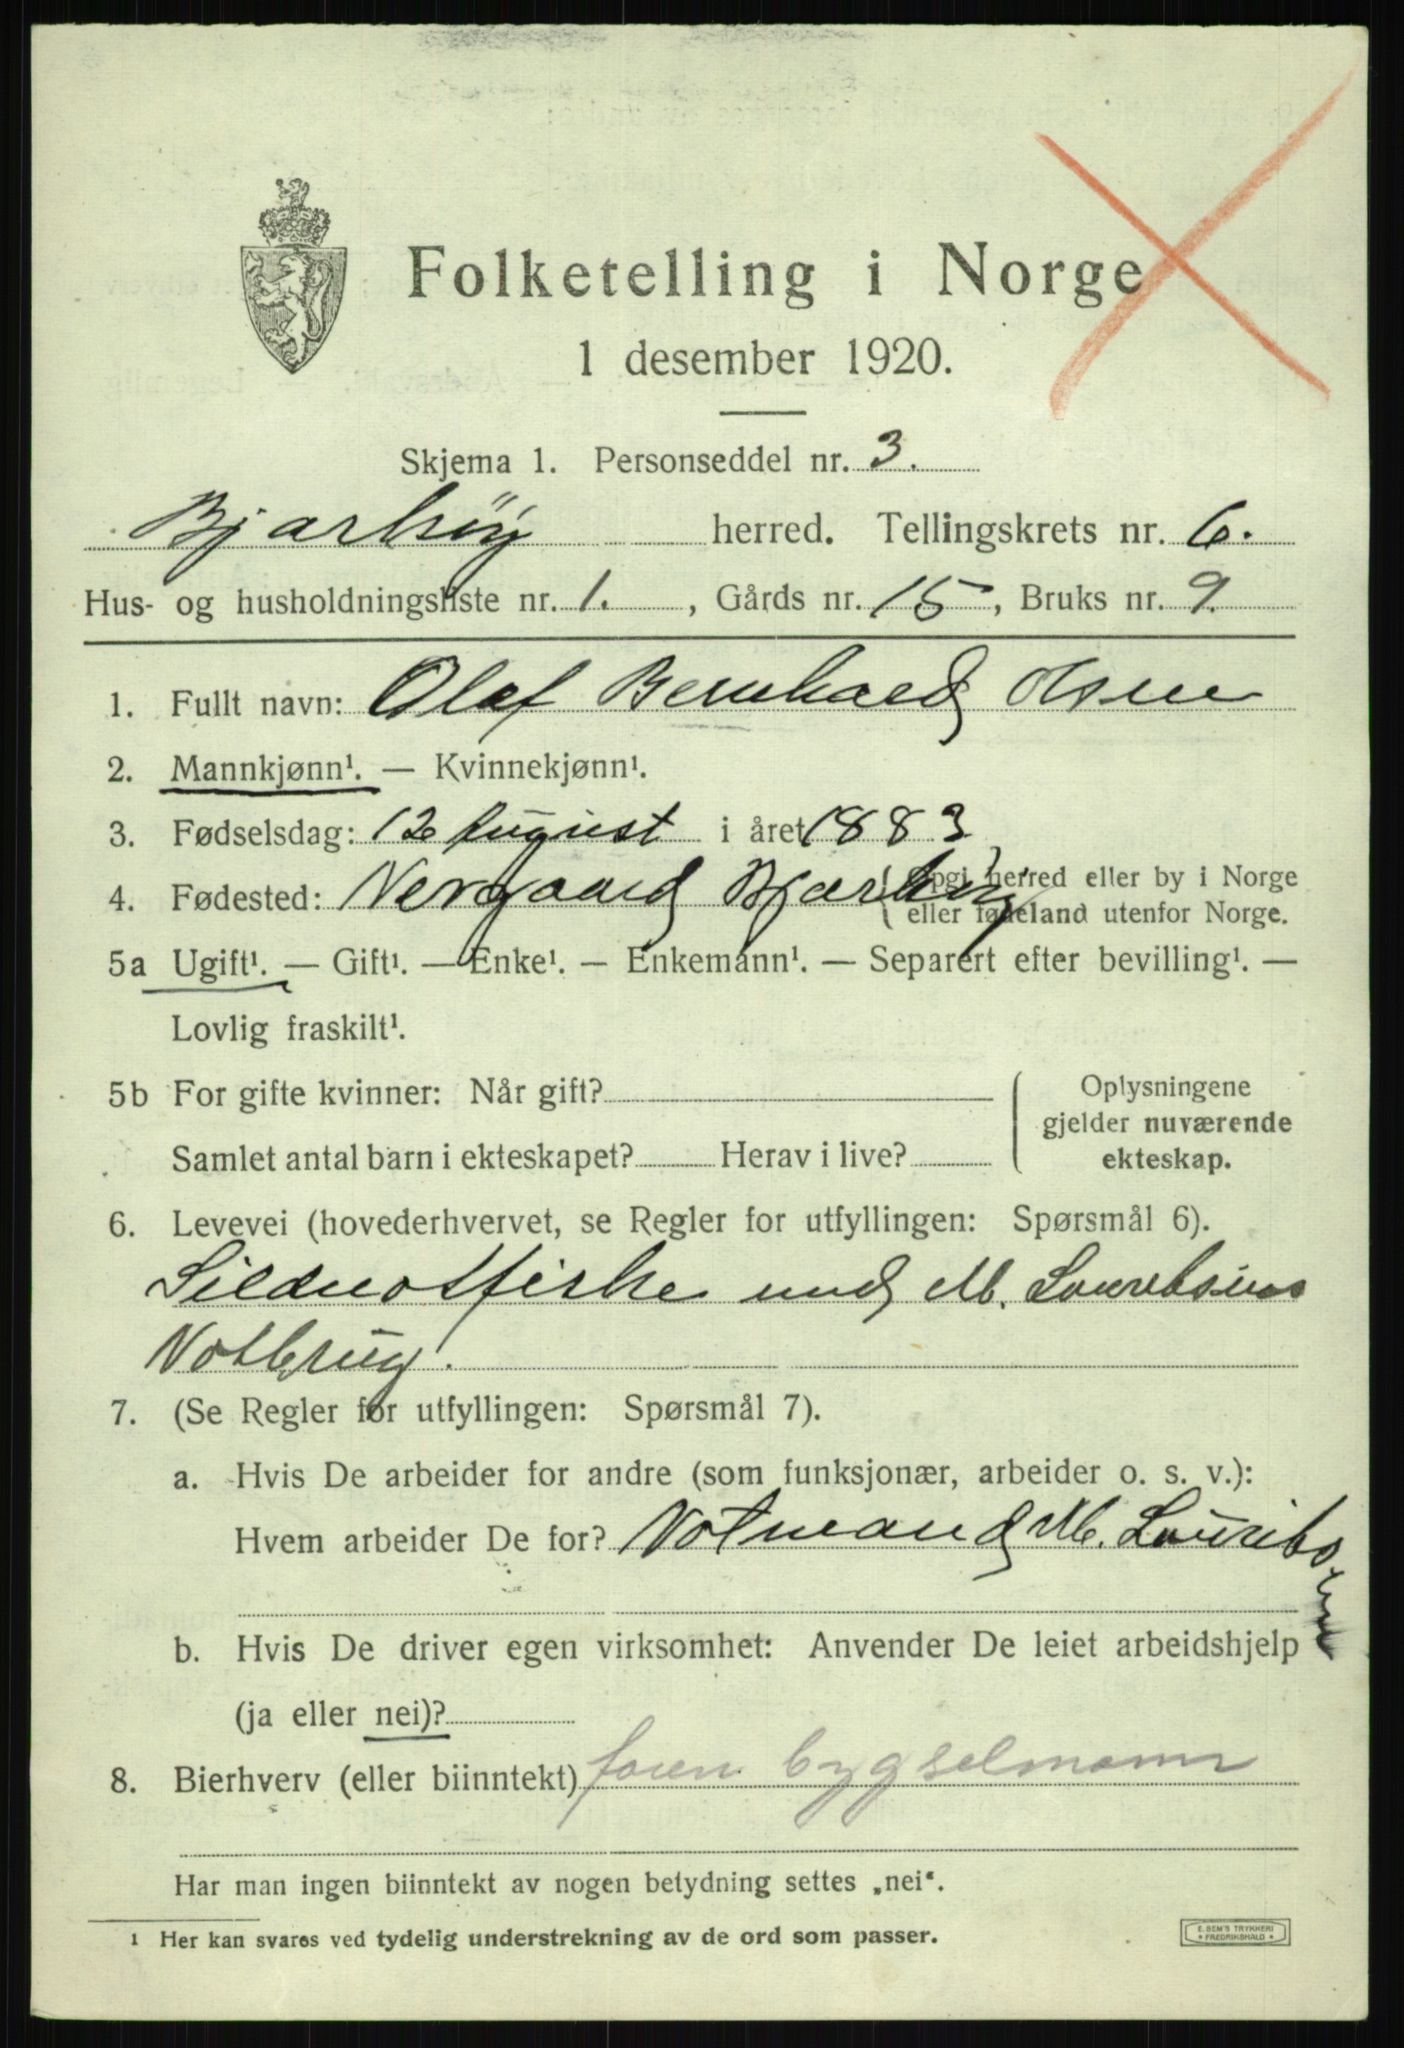 Folketelling i Norge
1 desember 1920.
Skjema 1. Personseddel nr. 3.
Bjarkøy herred. Tellingskrets nr. 6.
Hus- og husholdningsliste nr. 1. , Gårds nr. 15 , Bruks nr. 9.
1. Fullt navn: Olaf Bernhard Olsen
2. Mannkjønn¹. — Kvinnekjønn¹.
3. Fødselsdag: 12 August i året 1883
4. Fødested: Nergaard Bjarkøy (Opgi herred eller by i Norge
eller fødeland utenfor Norge.
5a Ugift¹. — Gift¹. — Enke¹. — Enkemann¹. — Separert efter bevilling¹. —
Lovlig fraskilt¹.
5b For gifte kvinner: Når gift? Oplysningene
gjelder nuværende
Samlet antal barn i ekteskapet? Herav i live? ekteskap.
6. Levevei (hovederhvervet, se Regler for utfyllingen: Spørsmål 6).
Sildnotfiske med M. Lauritsens
Notbrug.
7. (Se Regler for utfyllingen: Spørsmål 7).
a. Hvis De arbeider for andre (som funksjonær, arbeider o. s. v.):
Hvem arbeider De for? Notmand M. Lauritsen
b. Hvis De driver egen virksomhet: Anvender De leiet arbeidshjelp
(ja eller nei)?
8. Bierhverv (eller biinntekt) bygselmann
Har man ingen biinntekt av nogen betydning settes „nei“.
¹ Her kan svares ved tydelig understrekning av de ord som passer.
E. SEM'S TRYKKERI
FREDRIKSHALD